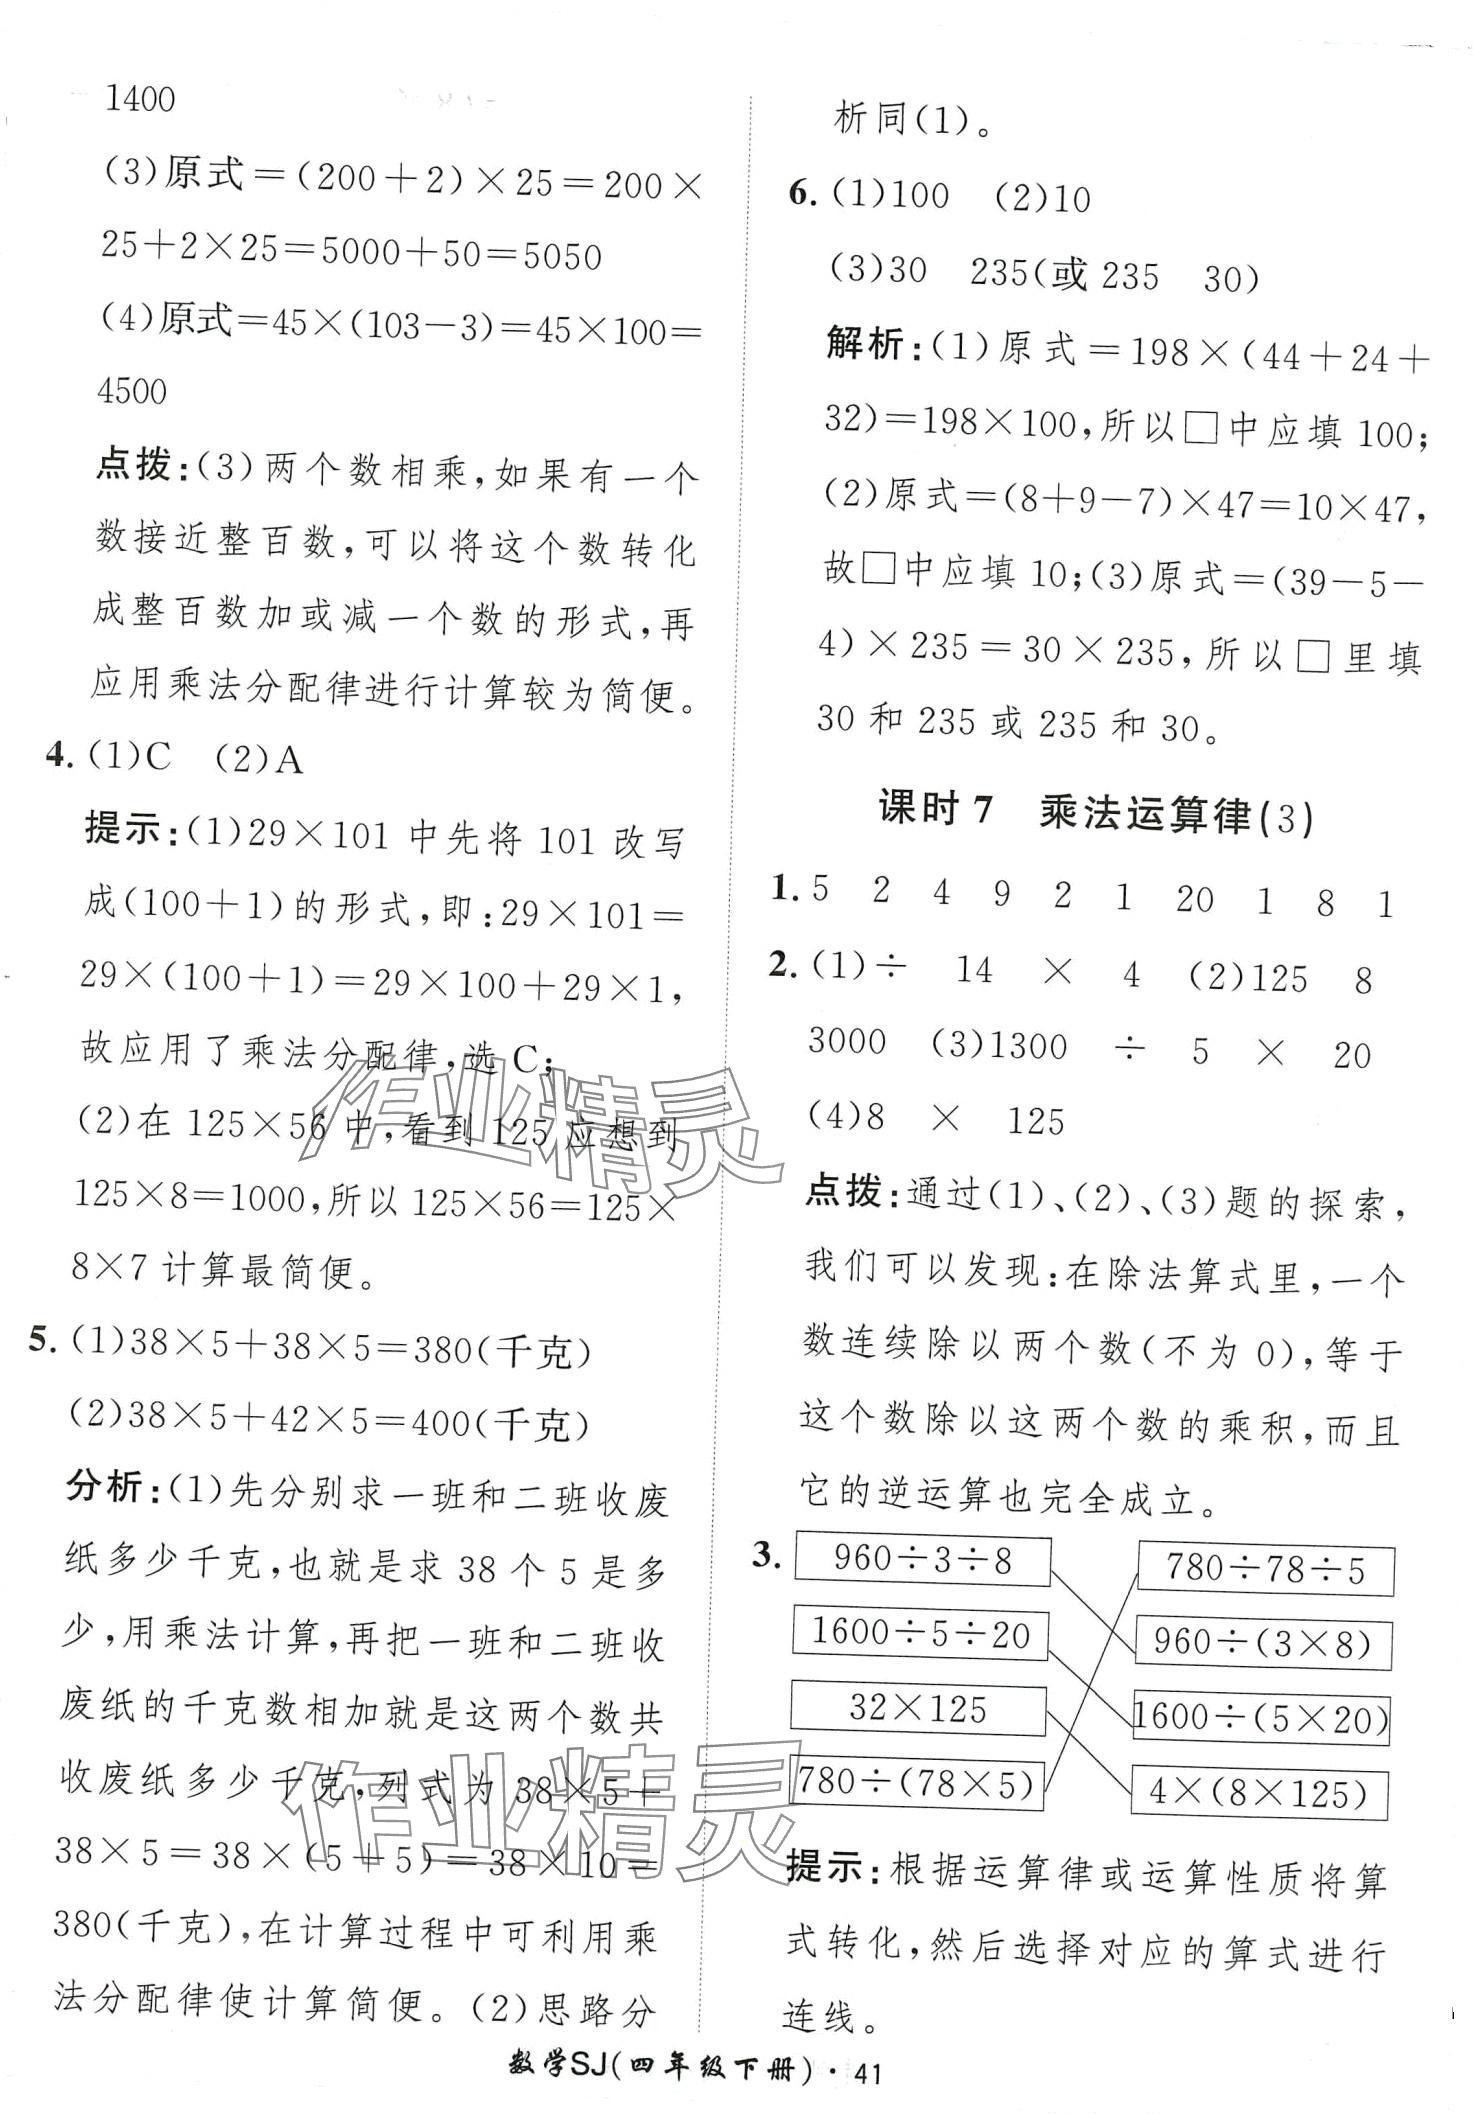 1400
(3)原式=(200+2)×25=200×
25+2×25=5000+50=5050
(4)原式=45×(103-3)=45×100=
4500
点拨:(3)两个数相乘,如果有一个
数接近整百数,可以将这个数转化
成整百数加或减一个数的形式,再
应用乘法分配律进行计算较为简便。
4.(1)C (2)A
提示:(1)29×101中先将101改写
成(100+1)的形式,即:29×101=
29×(100+1)=29×100+29×1,
故应用了乘法分配律,选C;
(2)在125×56中,看到125应想到
125×8=1000,所以125×56=125×
8×7计算最简便。
5.(1)38×5+38×5=380(千克)
(2)38×5+42×5=400(千克)
分析:(1)先分别求一班和二班收废
纸多少千克,也就是求38个5是多
少,用乘法计算,再把一班和二班收
废纸的千克数相加就是这两个数共
收废纸多少千克,列式为38×5+
38×5=38×(5+5)=38×10=
380(千克),在计算过程中可利用乘
法分配律使计算简便。(2)思路分
析同(1)。
6.(1)100 (2)10
(3)30 235(或235 30)
解析:(1)原式=198×(44+24+
32)=198×100,所以□中应填100;
(2)原式=(8+9-7)×47=10×47,
故□中应填10;(3)原式=(39-5-
4)×235=30×235,所以□里填
30和235或235和30。
课时7 乘法运算律(3)
1.5 2 4 9 2 1 20 1 8 1
2.(1)÷ 14 × 4 (2)125 8
3000 (3)1300 ÷ 5 × 20
(4)8 × 125
点拨:通过(1)、(2)、(3)题的探索,
我们可以发现:在除法算式里,一个
数连续除以两个数(不为0),等于
这个数除以这两个数的乘积,而且
它的逆运算也完全成立。
3. 960÷3÷8 780÷78÷5
1600÷5÷20 960÷(3×8)
32×125 1600÷(5×20)
780÷(78×5) 4×(8×125)
提示:根据运算律或运算性质将算
式转化,然后选择对应的算式进行
连线。
数学SJ(四年级下册)·41
作业精灵
作业精灵